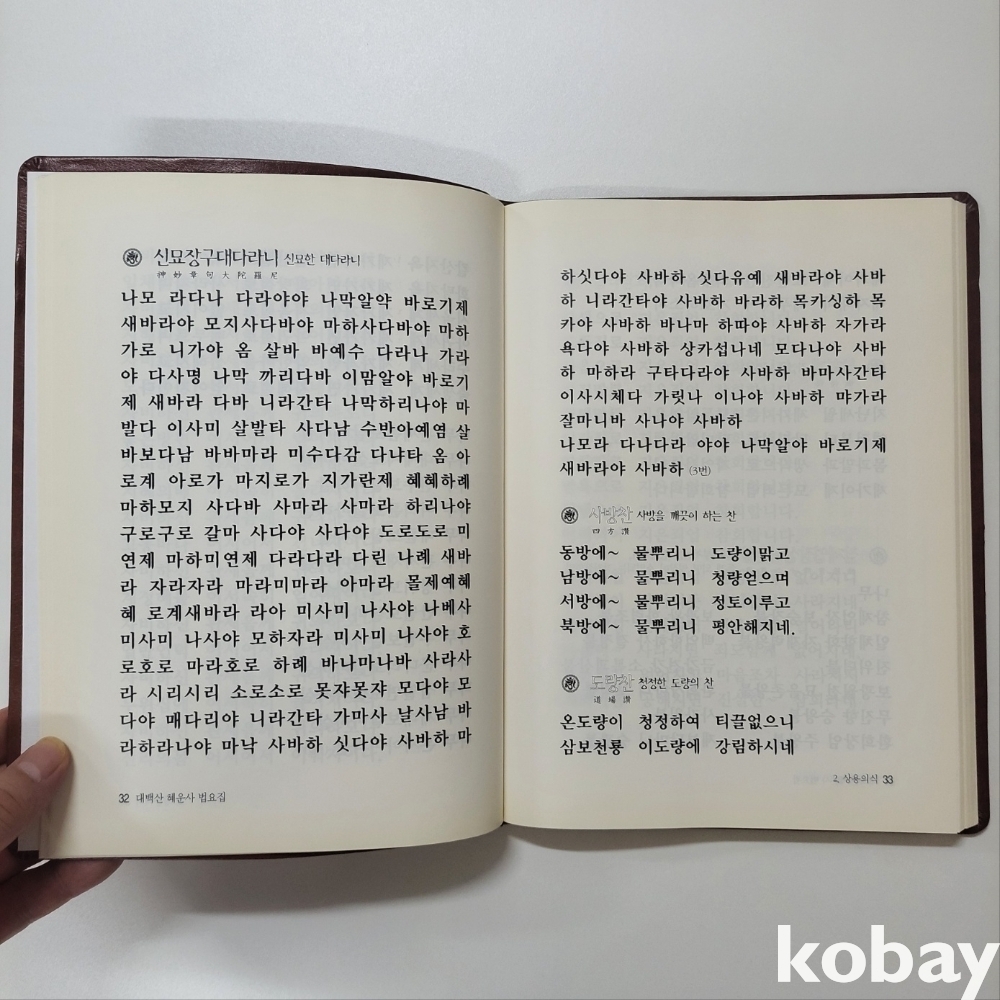 신묘장구대다라니 신묘한 대다라니
神妙章句大陀羅尼
나모 라다나 다라야야 나막알약 바로기제
새바라야 모지사다바야 마하사다바야 마하
가로 니가야 옴 살바 바예수 다라나 가라
야 다사명 나막 까리다바 이맘알야 바로기
제 새바라 다바 니라간타 나막하리나야 마
발다 이사미 살발타 사다남 수반아예염 살
바보다남 바바마라 미수다감 다냐타 옴 아
로계 아로가 마지로가 지가란제 혜혜하례
마하모지 사다바 사마라 사마라 하리나야
구로구로 갈마 사다야 사다야 도로도로 미
연제 마하미연제 다라다라 다린 나례 새바
라 자라자라 마라미마라 아마라 몰제예혜
혜 로계새바라 라아 미사미 나사야 나베사
미사미 나사야 모하자라 미사미 나사야 호
로호로 마라호로 하례 바나마나바 사라사
라 시리시리 소로소로 못쟈못쟈 모다야 모
다야 매다리야 니라간타 가마사 날사남 바
라하라나야 마낙 사바하 싯다야 사바하 마
32 대백산 혜운사 법요집
하싯다야 사바하 싯다유예 새바라야 사바
하 니라간타야 사바하 바라하 목카싱하 목
카야 사바하 바나마 하따야 사바하 자가라
욕다야 사바하 상카섭나네 모다나야 사바
하 마하라 구타다라야 사바하 바마사간타
이사시체다 가릿나 이나야 사바하 먀가라
잘마니바 사나야 사바하
나모라 다나다라 야야 나막알야 바로기제
새바라야 사바하 (3번)
사방찬 사방을 깨끗이 하는 찬
四方讚
동방에~ 물뿌리니 도량이맑고
남방에~ 물뿌리니 청량얻으며
서방에~ 물뿌리니 정토이루고
북방에~ 물뿌리니 평안해지네.
도량찬 청정한 도량의 찬
道場讚
온도량이 청정하여 티끌없으니
삼보천룡 이도량에 강림하시네
2. 상용의식 33
kobay